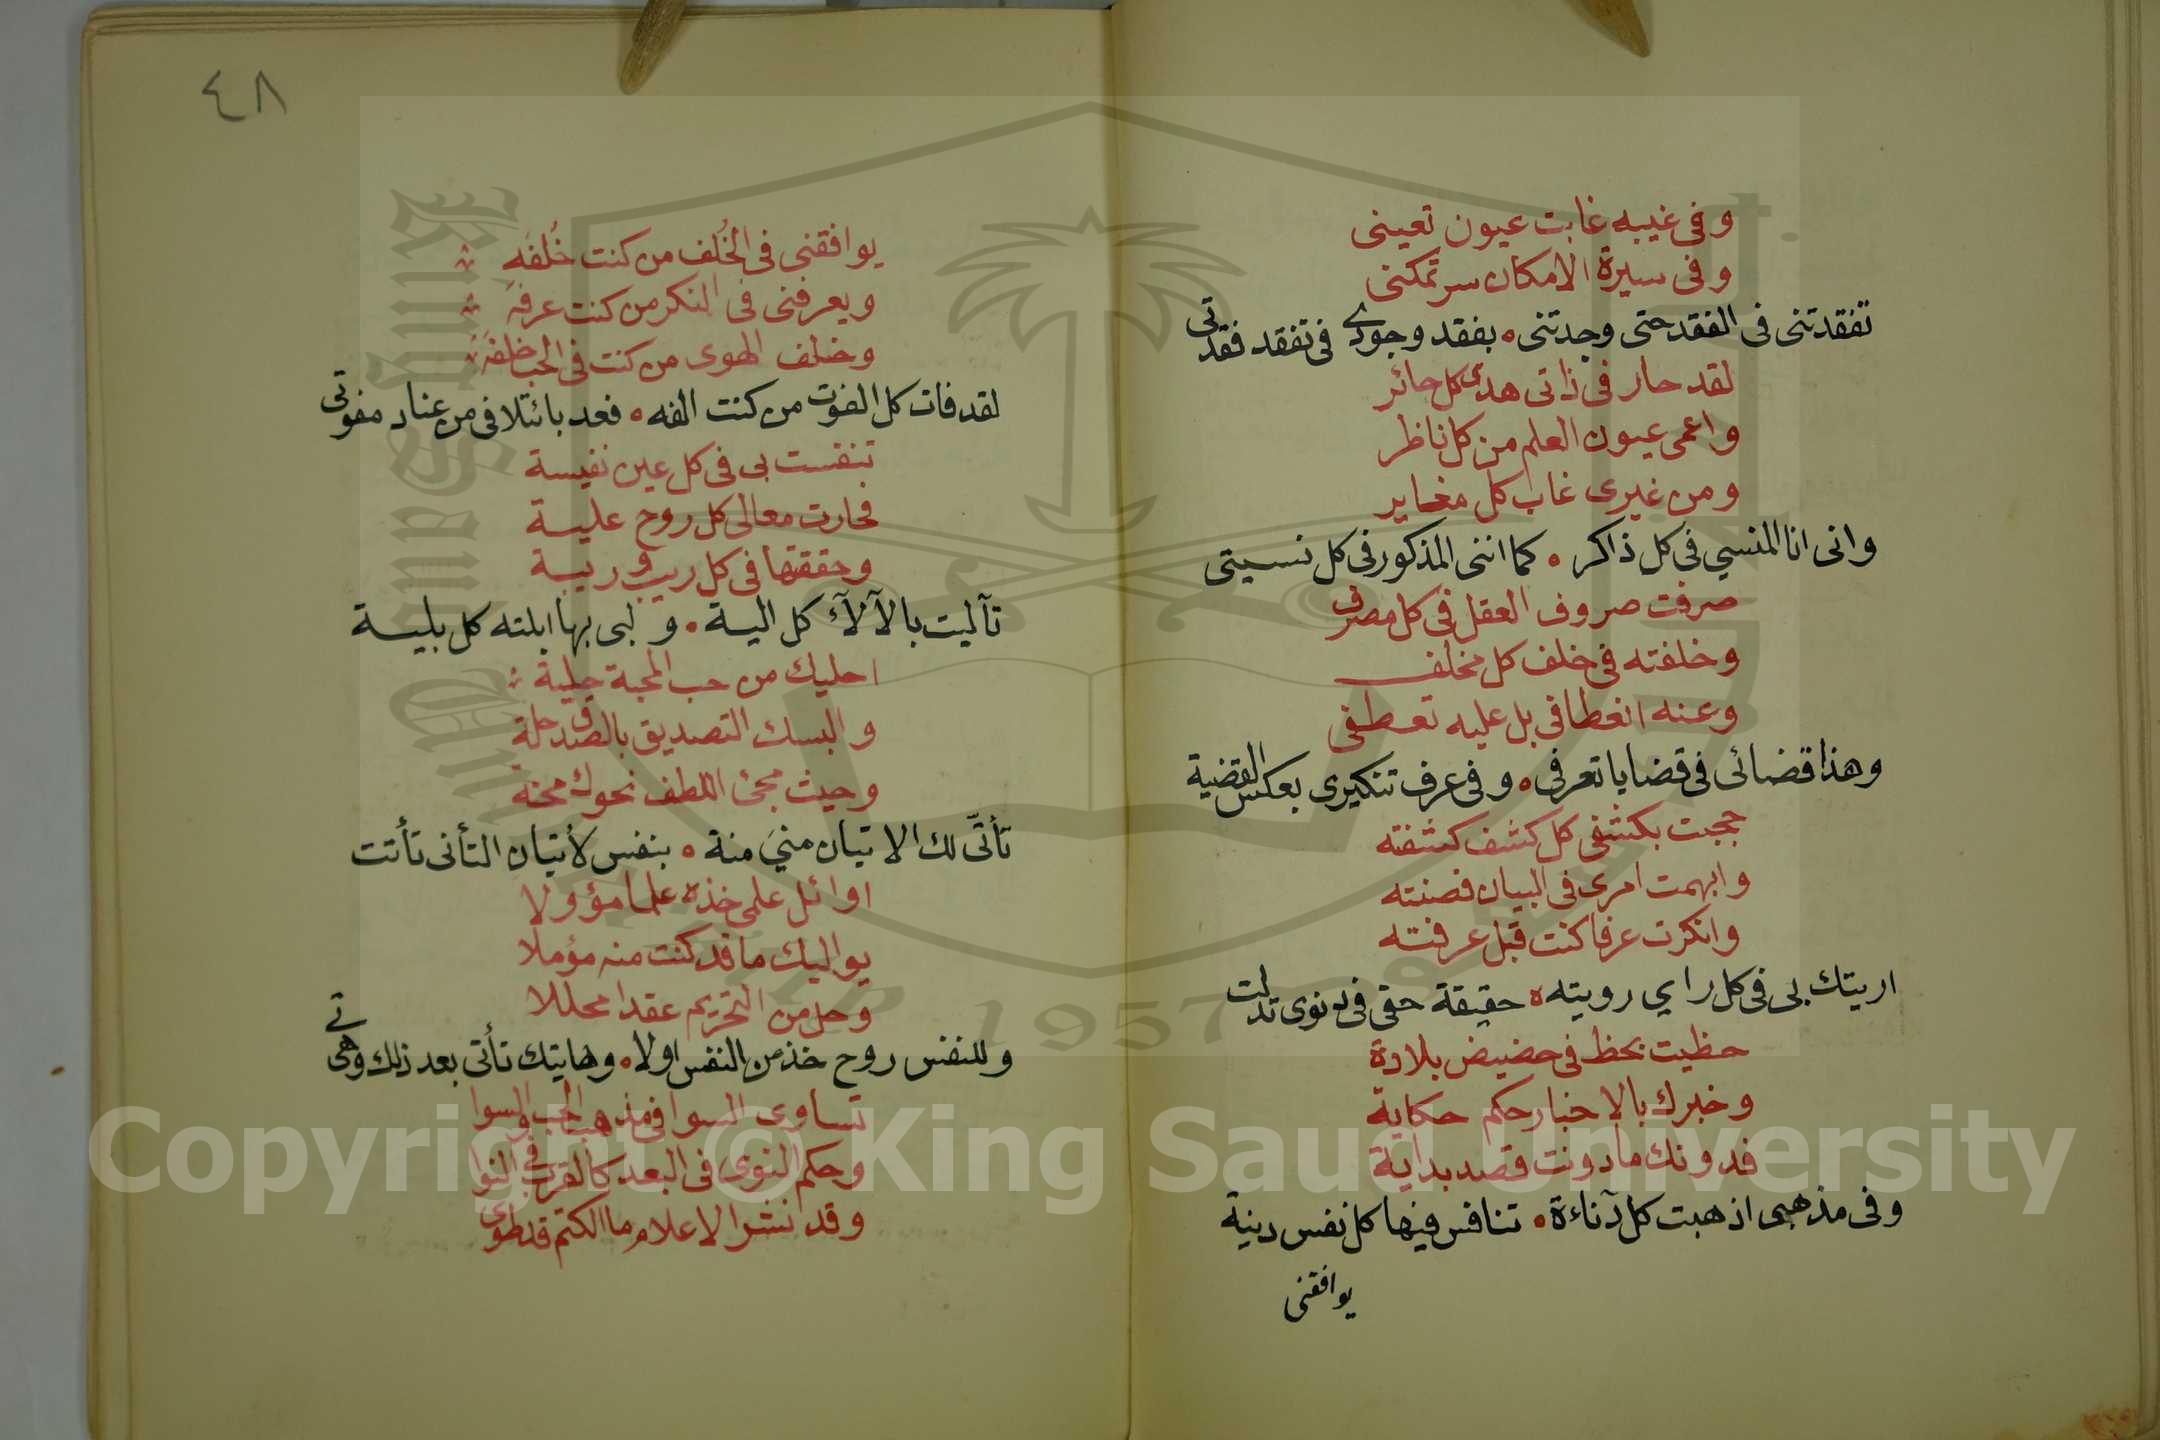 وفى غيبه غابت عيون تعينى
وفى سيرة الامكان سر تمكنى
تفقدتنى فى الفقد حتى وجدتنى ه بفقد وجودى فى تفقد فقدتى
لقد حار فى ذاتى هدى كل حائر
واعمى عيون العلم من كل ناظر
ومن غيرى غاب كل مغاير
وانى انا المنسي فى كل ذاكر ه كما اننى المذكور فى كل نسيتى
صرفت صروف العقل فى كل مصرف
وخلفته فى خلف كل مخلف
وعنه انعطافى بل عليه تعطفى
وهذا قضائى فى قضايا تعرفى ه وفى عرف تنكيرى بعكس القضية
حجبت بكشفى كل كشف كشفته
وابهمت امرى فى البيان فصنته
وانكرت عرفا كنت قبل عرفته
اريتك بى فى كل راي رويته ه حقيقة حقى فى نوى تدلت
حظيت بحظ فى حضيض بلادة
وخبرك بالاخبار حكم حكاية
فدونك ما دونت قصد بداية
وفى مذهبى اذهبت كل دناءة ه تنافس فيها كل نفس دنية
يوافقنى
٤٨
يوافقنى فى الخُلف من كنت خُلفَه
ويعرفنى فى النكر من كنت عرفَه
وخلف الهوى من كنت فى الحب خلفَه
لقد فات كل الفوت من كنت الفه ه فعد بائتلافى من عناد مفوتى
تنفست بى فى كل عين نفيسة
فحارت معالى كل روح عليسة
وحققتها فى كل ريب وريسة
تآليت بالآلآء كل الية ه ولبى بها ابلته كل بلية
احليك من حب المحبة حلية
والبسك التصديق بالصدق حلة
وحيث مجئ اللطف نحوك محنة
تأتّى لك الاتيان منيَ منة ه بنفس لأتيان التأنى تأتت
اوائل علمى خذه علما مؤولا
يواليك ما قد كنت منه مؤملا
وحل من التحريم عقدا محللا
وللنفس روح خذ من النفس اولا ه وهايتك تأتى بعد ذلك وهى تى
تساوى السوا فى مذهب الحب والسوا
وحكم النوى فى البعد كالقرب فى النوا
وقد انشر الاعلام ما الكتم قد طوى
Copyright © King Saud University
1957